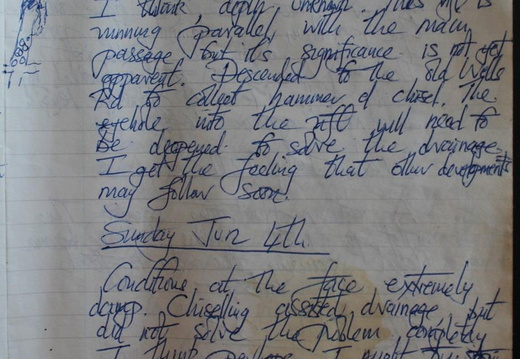 I think, depth unknown. This rift is
running parallel with the main
passage but it's significance is not yet
apparent. Descended to the old Wells
Rd to collect hammer & chisel. The
eyehole into the rift will need to
be deepened to solve the drainage.
I get the feeling that other developments
may follow soon.
Sunday Jun 4th.
Conditions at the face extremely
damp. Chiselling assisted drainage but
did not solve the problem completely
I think perhaps I might